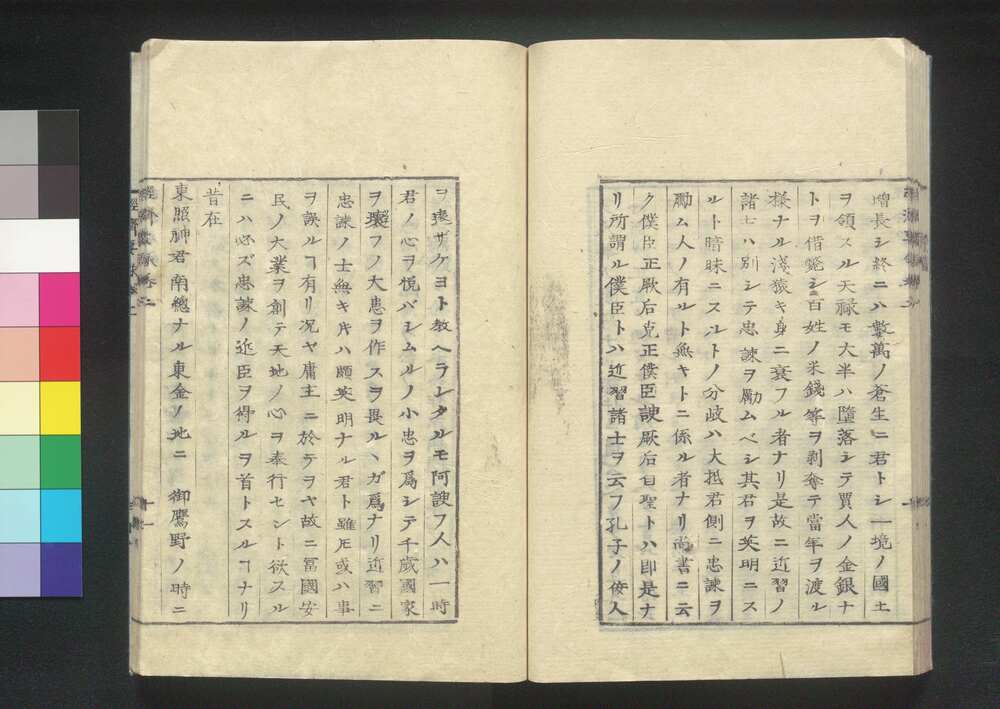 増長シ終ニハ數萬ノ蒼生ニ君トシ一境ノ國土
ヲ領スル天禄モ大半ハ墮落シテ買人ノ金銀ナ
トヲ借貸シ百姓ノ米錢等ヲ剥奪テ當年ヲ渡ル
樣ナル淺猿キ身ニ衰フル者ナリ是故ニ近習ノ
諸士ハ別シテ忠諫ヲ勵ムベシ其君ヲ英明ニス
ルト暗昧ニスルトノ分岐ハ大抵君側ニ忠諫ヲ
勵ム人ノ有ルト無キトニ係ル者ナリ尚書ニ云
ク僕臣正厥后克正僕臣諛厥后自聖トハ即是ナ
リ所謂ル僕臣トハ近習諸士ヲ云フ孔子ノ佞人
ヲ遠ザケヨト教ヘラレタルモ阿諛フ人ハ一時
君ノ心ヲ悦バシムルノ小忠ヲ爲シテ千歳國家
ヲ壞フノ大患ヲ作スヲ畏ルヽガ爲ナリ近習ニ
忠諫ノ士無キ𪜈ハ頗英明ナル君ト雖𪜈或ハ事
ヲ誤ルヿ有リ况ヤ庸主ニ於テヲヤ故ニ冨國安
民ノ大業ヲ創テ天地ノ心ヲ奉行セント欲スル
ニハ必ズ忠諫ノ近臣ヲ得ルヲ首トスルヿナリ
昔在
東照神君南總ナル東金ノ地ニ 御鷹野ノ時ニ